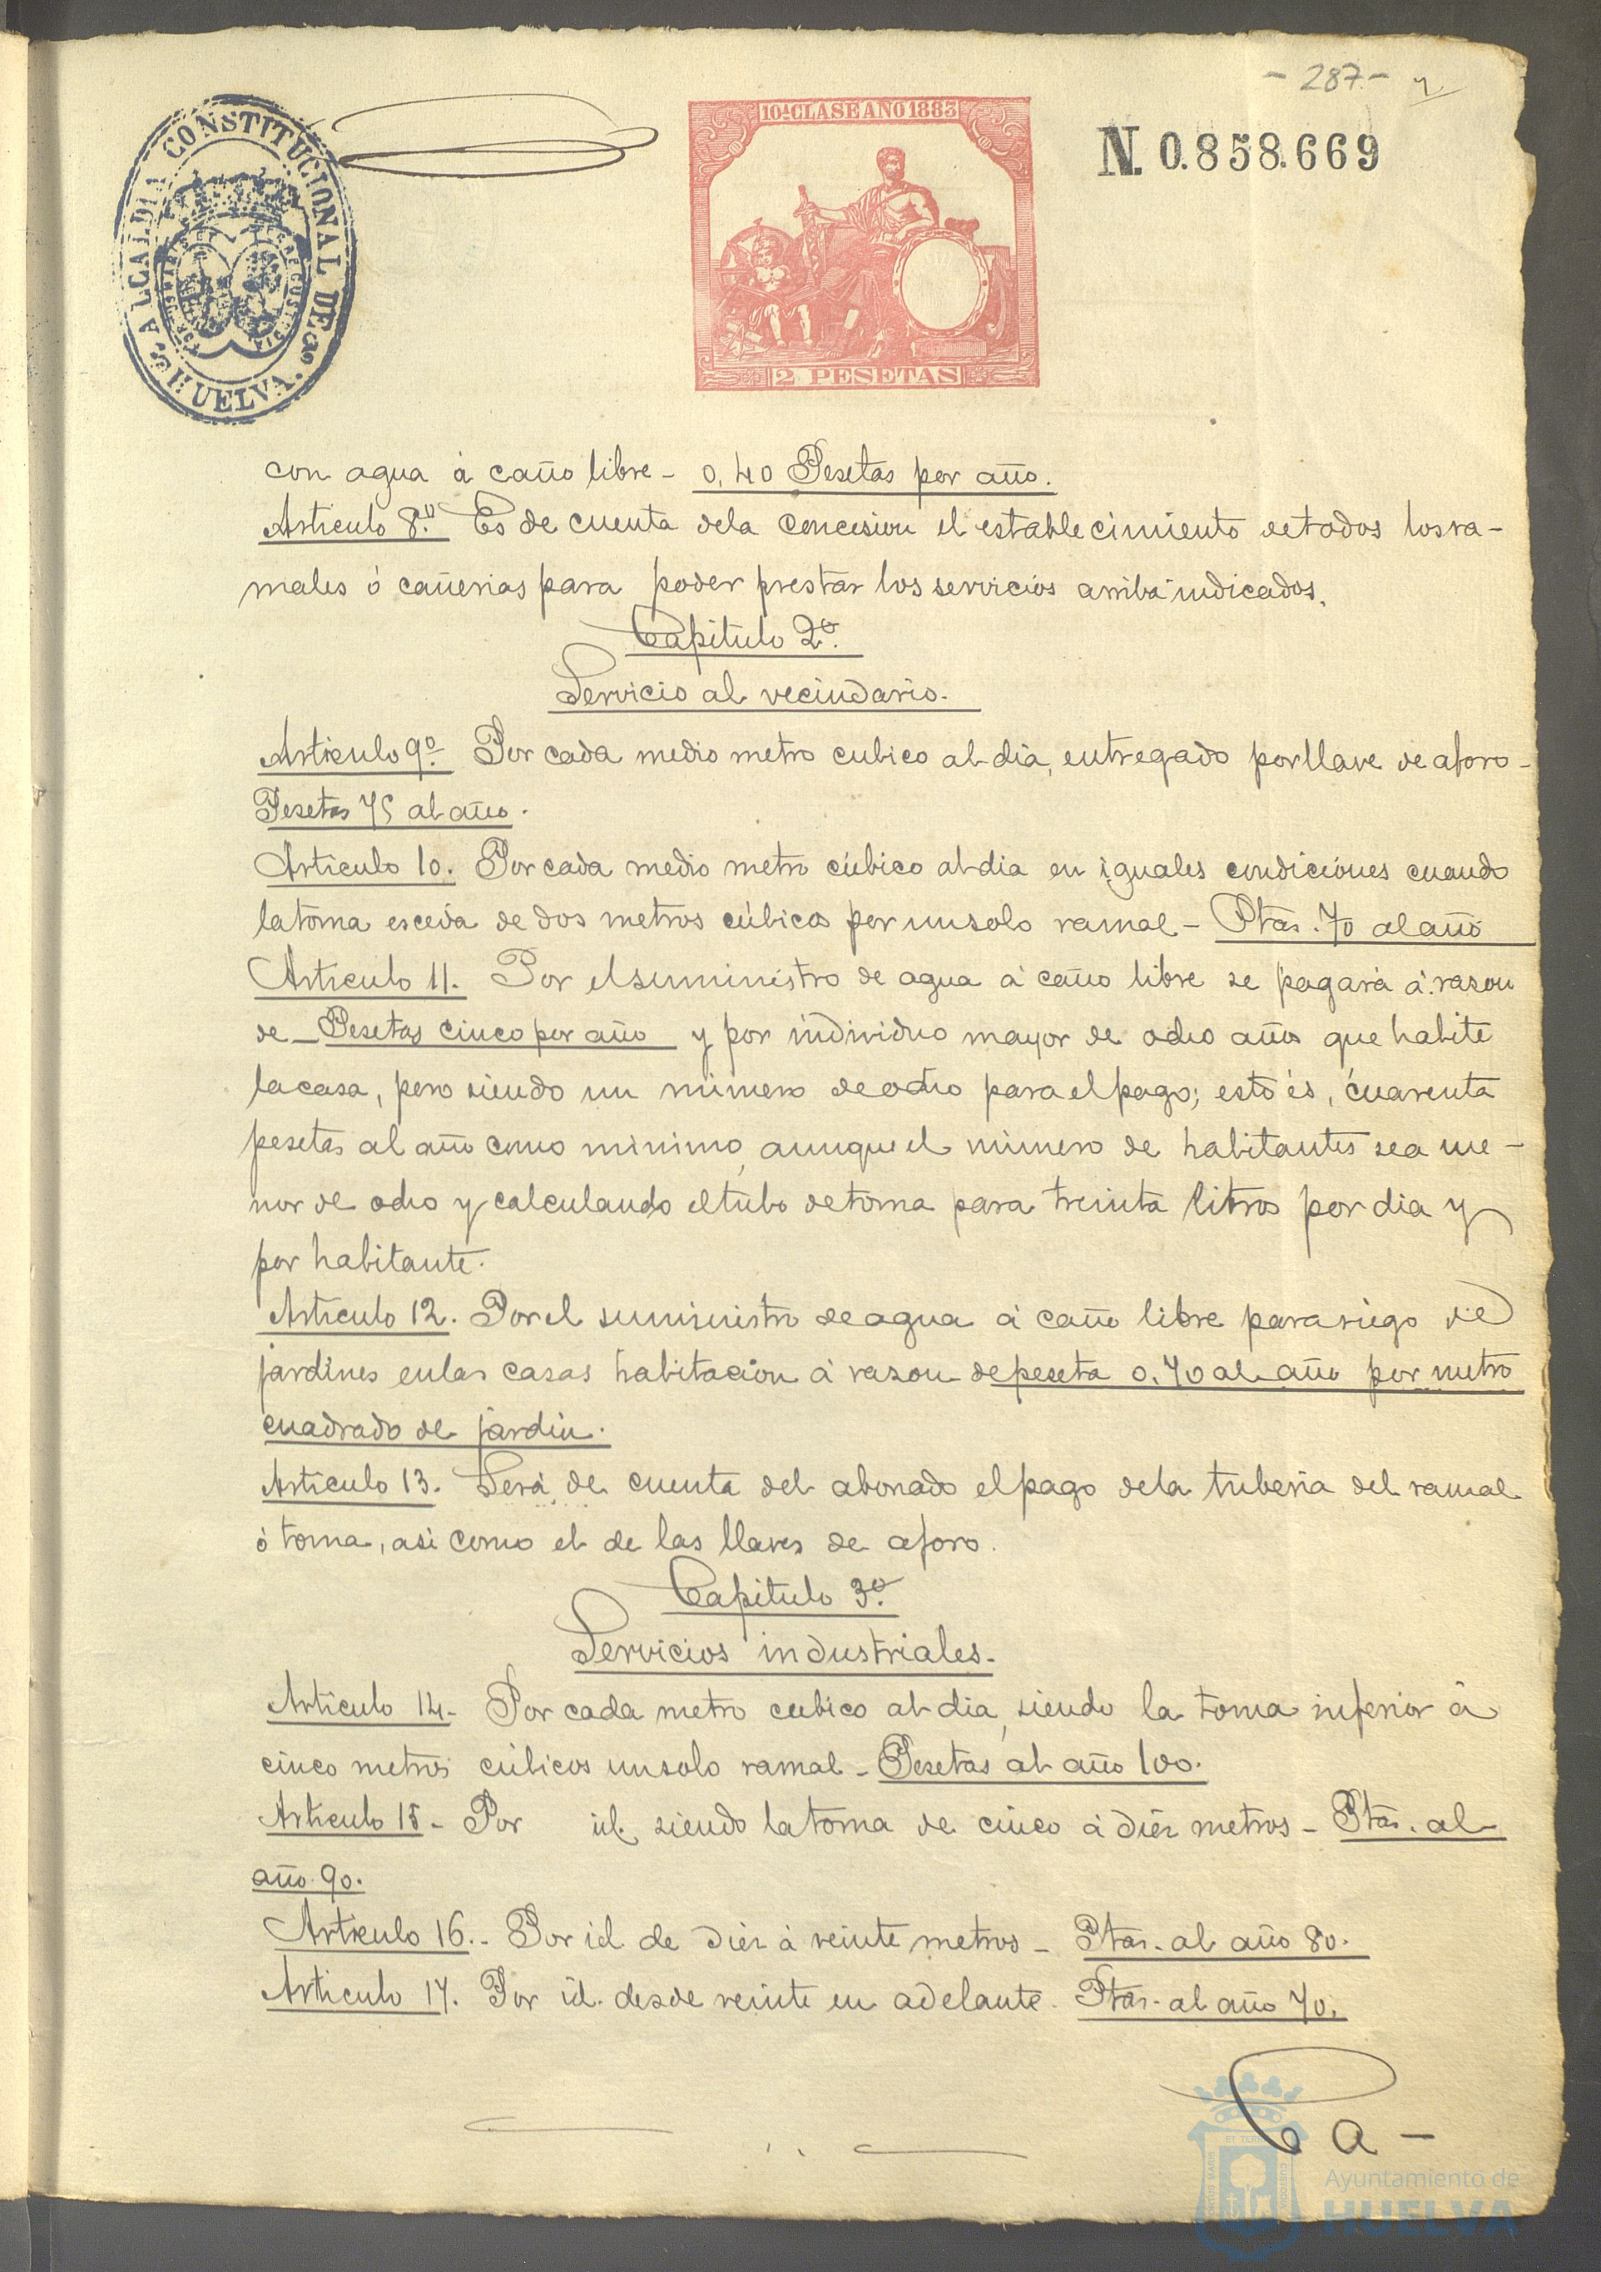 - 287 -
ALCALDIA CONSTITUCIONAL DE HUELVA.
10ª CLASE AÑO 1883
N. 0.858.669
2 PESETAS
con agua á caño libre - 0,40 Pesetas por año.
Articulo 8.º Es de cuenta dela concesion el establecimiento detodos losra-
males ó cañerias para poder prestar los servicios arriba indicados.
Capitulo 2º.
Servicio al vecindario.
Articulo 9º. Por cada medio metro cubico al dia, entregado porllave de aforo -
Pesetas 75 al año.
Articulo 10. Por cada medio metro cúbico al dia en iguales condiciones cuando
latoma esceda de dos metros cúbicos por unsolo ramal - Ptas. 70 al año
Articulo 11. Por elsuministro de agua á caño libre se pagará á razon
de - Pesetas cinco por año y por individuo mayor de ocho años que habite
lacasa, pero siendo un número deocho para elpago; esto és, cuarenta
pesetas al año como minimo, aunque el número de habitantes sea me-
nor de ocho y calculando eltubo detoma para treinta litros por dia y
por habitante.
Articulo 12. Porel suministro deagua á caño libre parariego de
jardines enlas casas habitacion á razon depeseta 0,70 al año por metro
cuadrado de jardin.
Articulo 13. Será de cuenta del abonado elpago dela tuberia del ramal
ó toma, asi como el de las llaves de aforo.
Capitulo 3º.
Servicios industriales.
Articulo 14- Por cada metro cubico al dia, siendo la toma inferior á
cinco metros cúbicos unsolo ramal - Pesetas al año 100.
Articulo 15 - Por id. siendo latoma de cinco á diéz metros - Ptas. al
año 90.
Articulo 16. - Por id de diéz á veinte metros - Ptas. al año 80.
Articulo 17. Por id. desde veinte en adelante. Ptas. al año 70.
Ca-
Ayuntamiento de
HUELVA